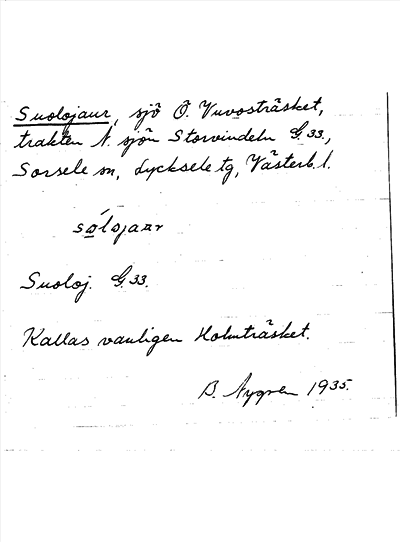 Suolojaur, sjö Ö. Vuvosträsket,
trakten N. sjön Storvindeln G.33.,
Sorsele sn, Lycksele tg, Västerb. l.
sólojaur
Suoloj. G.33.
Kallas vanligen Holmträsket.
B. Nygren 1935.